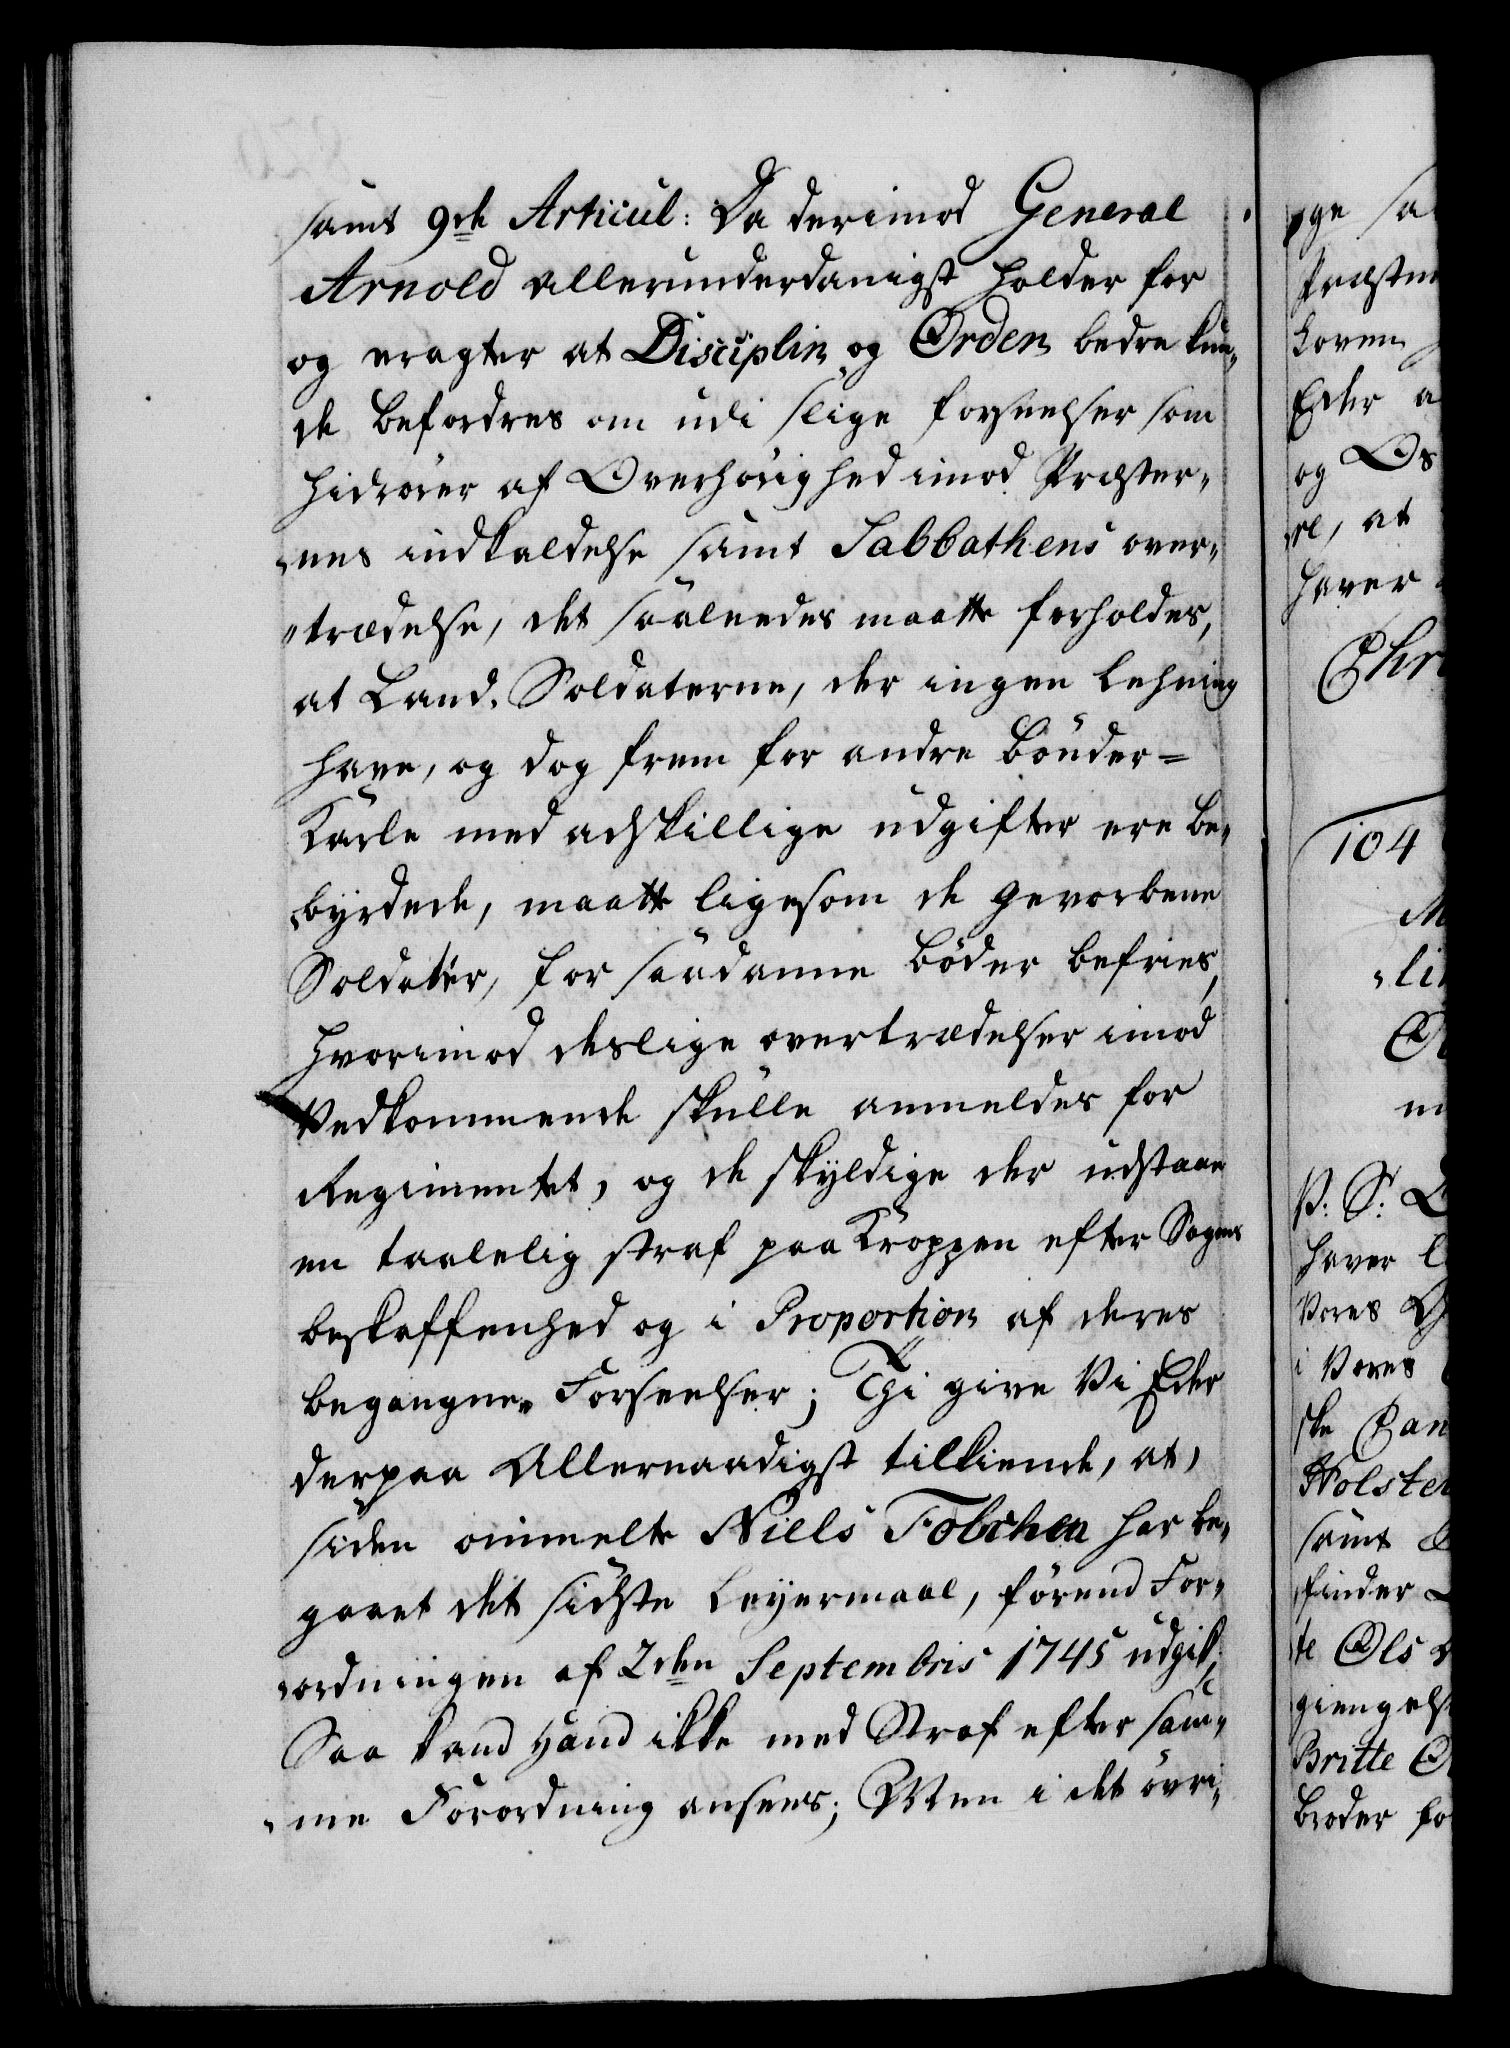 samt 9de Articul: Da derimod General
Arnold allerunderdanigst holder for
og eragter at Disciplin og Orden bedre kun„
de befordres om udi slige forseelser som
hidrører af Overhørighed imod Præster„
„nes indkaldelse samt Sabbathens over„
„trædelse, det saaledes maatte forholdes,
at Land-Soldaterne, der ingen Lehning
have, og dog frem for andre Bønder=
Karle med adskillige udgifter ere be„
„byrdede, maatte ligesom de gevorbene
Soldater, for saadanne bøder befries,
hvorimod deslige overtrædelser imod
Vedkommende skulle anmeldes for
Regimentet, og de skyldige der udstaae
en taalelig straf paa Kroppen efter Sagens
beskaffenhed og i Proportion af deres
begangne Forseelser; Thi give Vi Eder
derpaa Allernaadigst tilkiende, at,
siden ommelte Niels Tolichen har be„
gaaet det sidste Leyermaal, førend For„
„ordningen af 2den Septembris 1745 udgik,
Saa kand hand ikke med Straf efter sam„
„me Forordning ansees; Men i det øvri„
ge sa
Præsten
Loven
Eder a
og Os
re, at
haver
Chri
104
M
„li
O
m
V: S:
haver
Vores
i Vores
ske Can
Holsten
samt
finder
te Ols
giengels
Britte O
broder fo